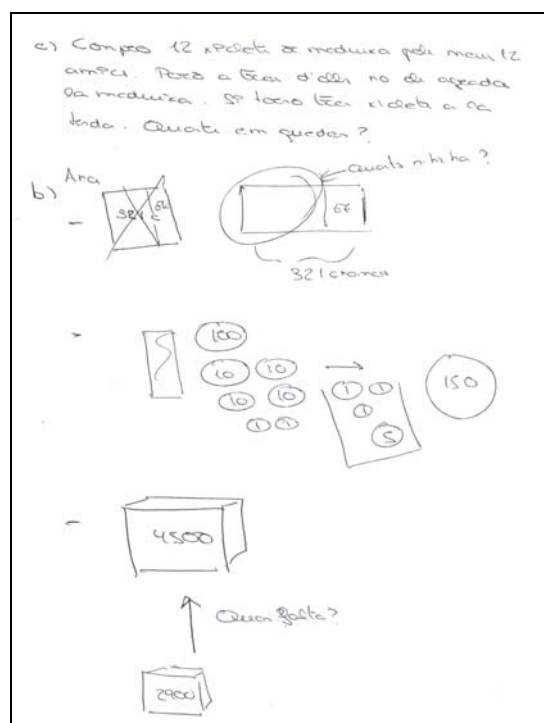 c) Compro 12 xiclets de maduixa pels meus 12
amics. Però a tres d'ells no els agrada
la maduixa. Si torno tres xiclets a la
tenda. Quants em queden?
Quants n'hi ha?
b) Ana
- 321 67
321 cromos
100
10 10
10 10
1 1
1 1
1
5
150
- 4500
Quan falta?
2900